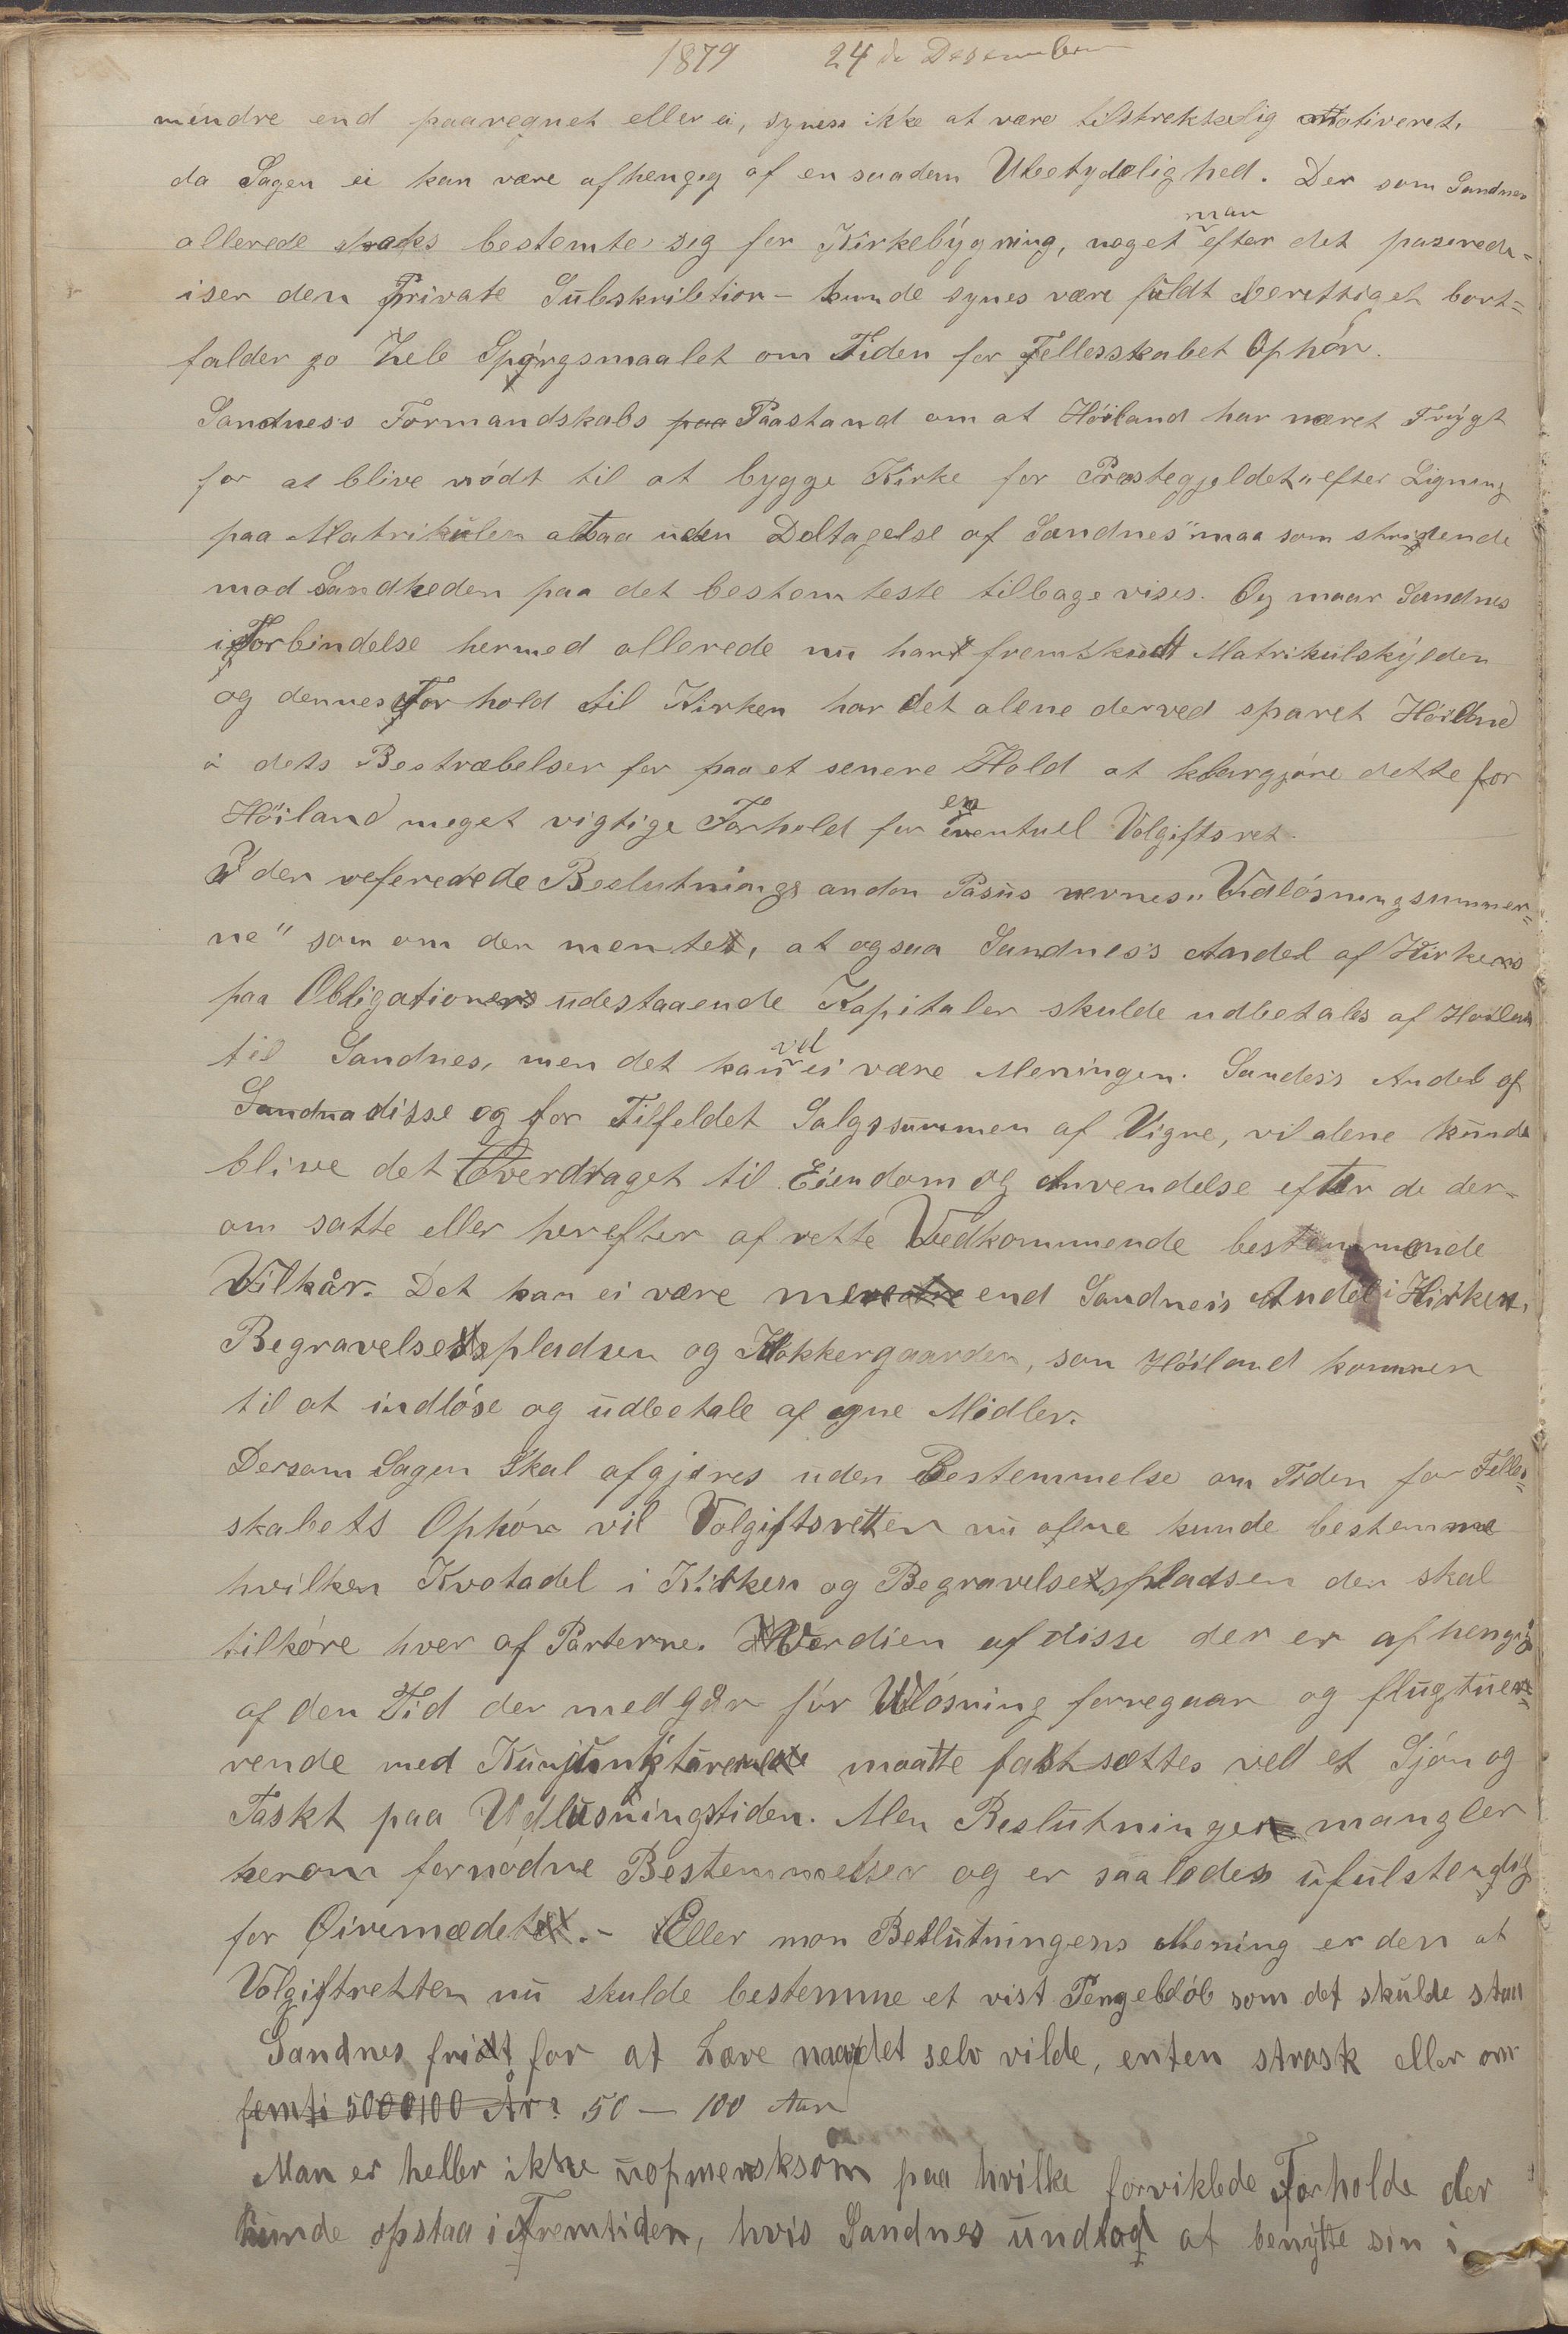 1879 24de Desember
mindre end paaregnet eller ei, synes ikke at være tilstrekkelig motiveret,
da Sagen ei kan være afhengig af en saadan Ubetydelighed. Der som Sandnes
allerede straks bestemte sig for Kirkebygning, noget man efter det paserede=
iser den Private Subskribtion - kunde synes være fuldt berettiget bort=
falder jo hele Spørgsmaalet om Tiden for Fellesskabet Ophör.
Sandnes's Formandskabs paa Paastand om at Höiland har næret Frygt
for at blive nödt til at bygge Kirke for Præstegjeldet "efter Ligning
paa Matrikulen altsaa uden Deltagelse af Sandnes" maa som stridende
mod Sandheden paa det bestemteste tilbagevises. Og maar Sandnes
i Forbindelse hermed allerede nu har fremskudt Matrikulskylden
og dennes Forhold til Kirken har det alene derved sparet Höiland
i dets Bestræbelser for paa et senere Hold at klargjöre dette for
Höiland meget vigtige Forhold for en eventuel Volgiftsret.
I den refererede Beslutnings anden Pasus nevnes "Udlösningsummer=
ne" som om den mente, at ogsaa Sandnes's Andel af Kirkens
paa Obligationer udestaaende Kapitaler skulde udbetales af Höiland
til Sandnes, men det kan vel ei være Meningen. Sandes's Andel af
Sandna disse og for Tilfeldet Salgssummen af Vigne, vil alene kunde
blive det Overdraget til Eiendom og Anvendelse efter de der=
om satte eller herefter af rette Vedkommende bestemmende
Vilkår. Det kan ei være mere end Sandnes's Andel i Kirken,
Begravelsespladsen og Klokkergaarden, som Höiland kommer
til at indlöse og udbetale af egne Midler.
Dersom Sagen Skal afgjøres uden Bestemmelse om Tiden for Felles=
skabets Ophör vil Volgiftsretten nu alene kunde bestemme
hvilken Kvotadel i Kirken og Begravelsespladsen der skal
tilhøre hver af Parterne. Verdien af disse der er afhengig
af den Tid der medgår för Udlösning foregaar og flugtue=
rende med Kunjunkturerne maatte fastsættes ved et Sjön og
Taskt paa Udløsningstiden. Men Beslutningen mangler
herom fornødne Bestemmelser og er saaledes ufulstendig
for Öiemedet. - Eller mon Beslutningens Mening er den at
Volgiftretten nu skulde bestemme et vist Pengeblöb som det skulde staa
Sandnes frit for at Hæve naar det selv vilde, enten strask eller om
femti 50 100 År? 50 - 100 Aar
Man er heller ikke uopmerksöm paa hvilke forviklede Forholde der
kunde opstaa i Fremtiden, hvis Sandnes undlod at benytte sin i